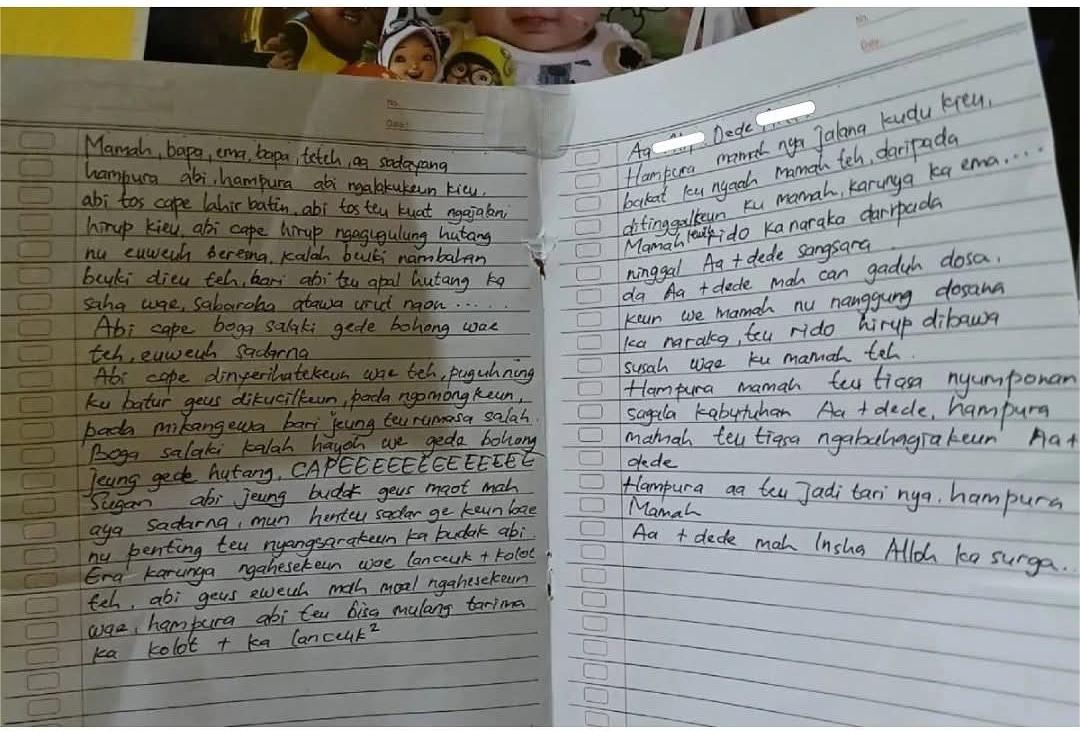 No.
Date:
Mamah, bapa, ema, bapa, teteh, aa sadayana
hampura abi, hampura abi ngalakukeun kieu.
abi tos cape lahir batin, abi tos teu kuat ngajalani
hirup kieu, abi cape hirup ngagugulung hutang
nu euweuh beresna, kalah beuki nambahan
beuki dieu teh, bari abi teu apal hutang ka
saha wae, sabaraha atawa urut naon .....
Abi cape boga salaki gede bohong wae
teh, euweuh sadarna
Abi cape dinyerihatekeun wae teh, puguhning
ku batur geus dikucilkeun, pada ngomongkeun,
pada mikangewa bari jeung teu rumasa salah.
Boga salaki kalah hayoh we gede bohong
jeung gede hutang, CAPEEEEEEEEEEEEEE
Sugan abi jeung budak geus maot mah
aya sadarna, mun henteu sadar ge keun bae
nu penting teu nyangsarakeun ka budak abi.
Era karunya ngahesekeun wae lanceuk + kolot
teh, abi geus eweuh mah moal ngahesekeun
wae, hampura abi teu bisa mulang tarima
ka kolot + ka lanceuk²
No.
Date:
Aa Dede
Hampura mamah nya jalana kudu kieu,
bakat ku nyaah mamah teh, daripada
ditinggalkeun ku mamah, karunya ka ema....
Mamah leuih rido ka naraka daripada
ninggal Aa + dede sangsara
da Aa + dede mah can gaduh dosa,
keun we mamah nu nanggung dosana
ka naraka, teu rido hirup dibawa
susah wae ku mamah teh.
Hampura mamah teu tiasa nyumponan
sagala kabutuhan Aa + dede, hampura
mamah teu tiasa ngabahagiakeun Aa +
dede
Hampura aa teu jadi tari nya. hampura
Mamah
Aa + dede mah Insha Alloh ka surga..